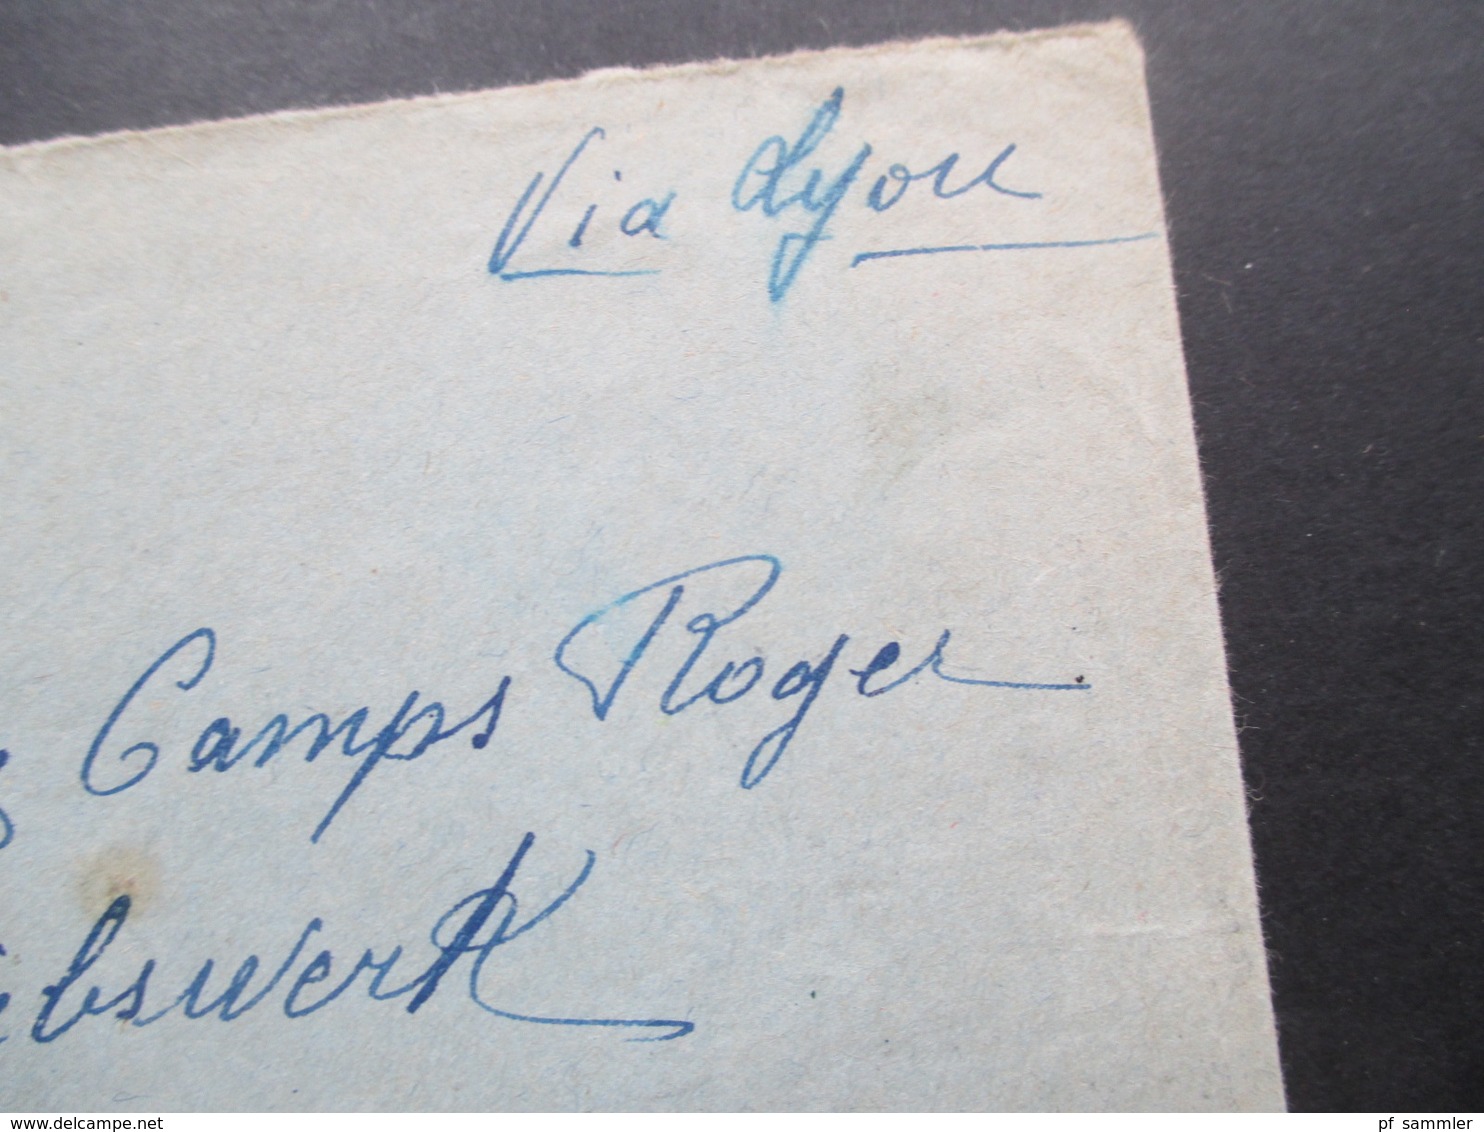 Via Lyon
Camps Roger
ebswerk
www.delcampe.net
pf_sammler